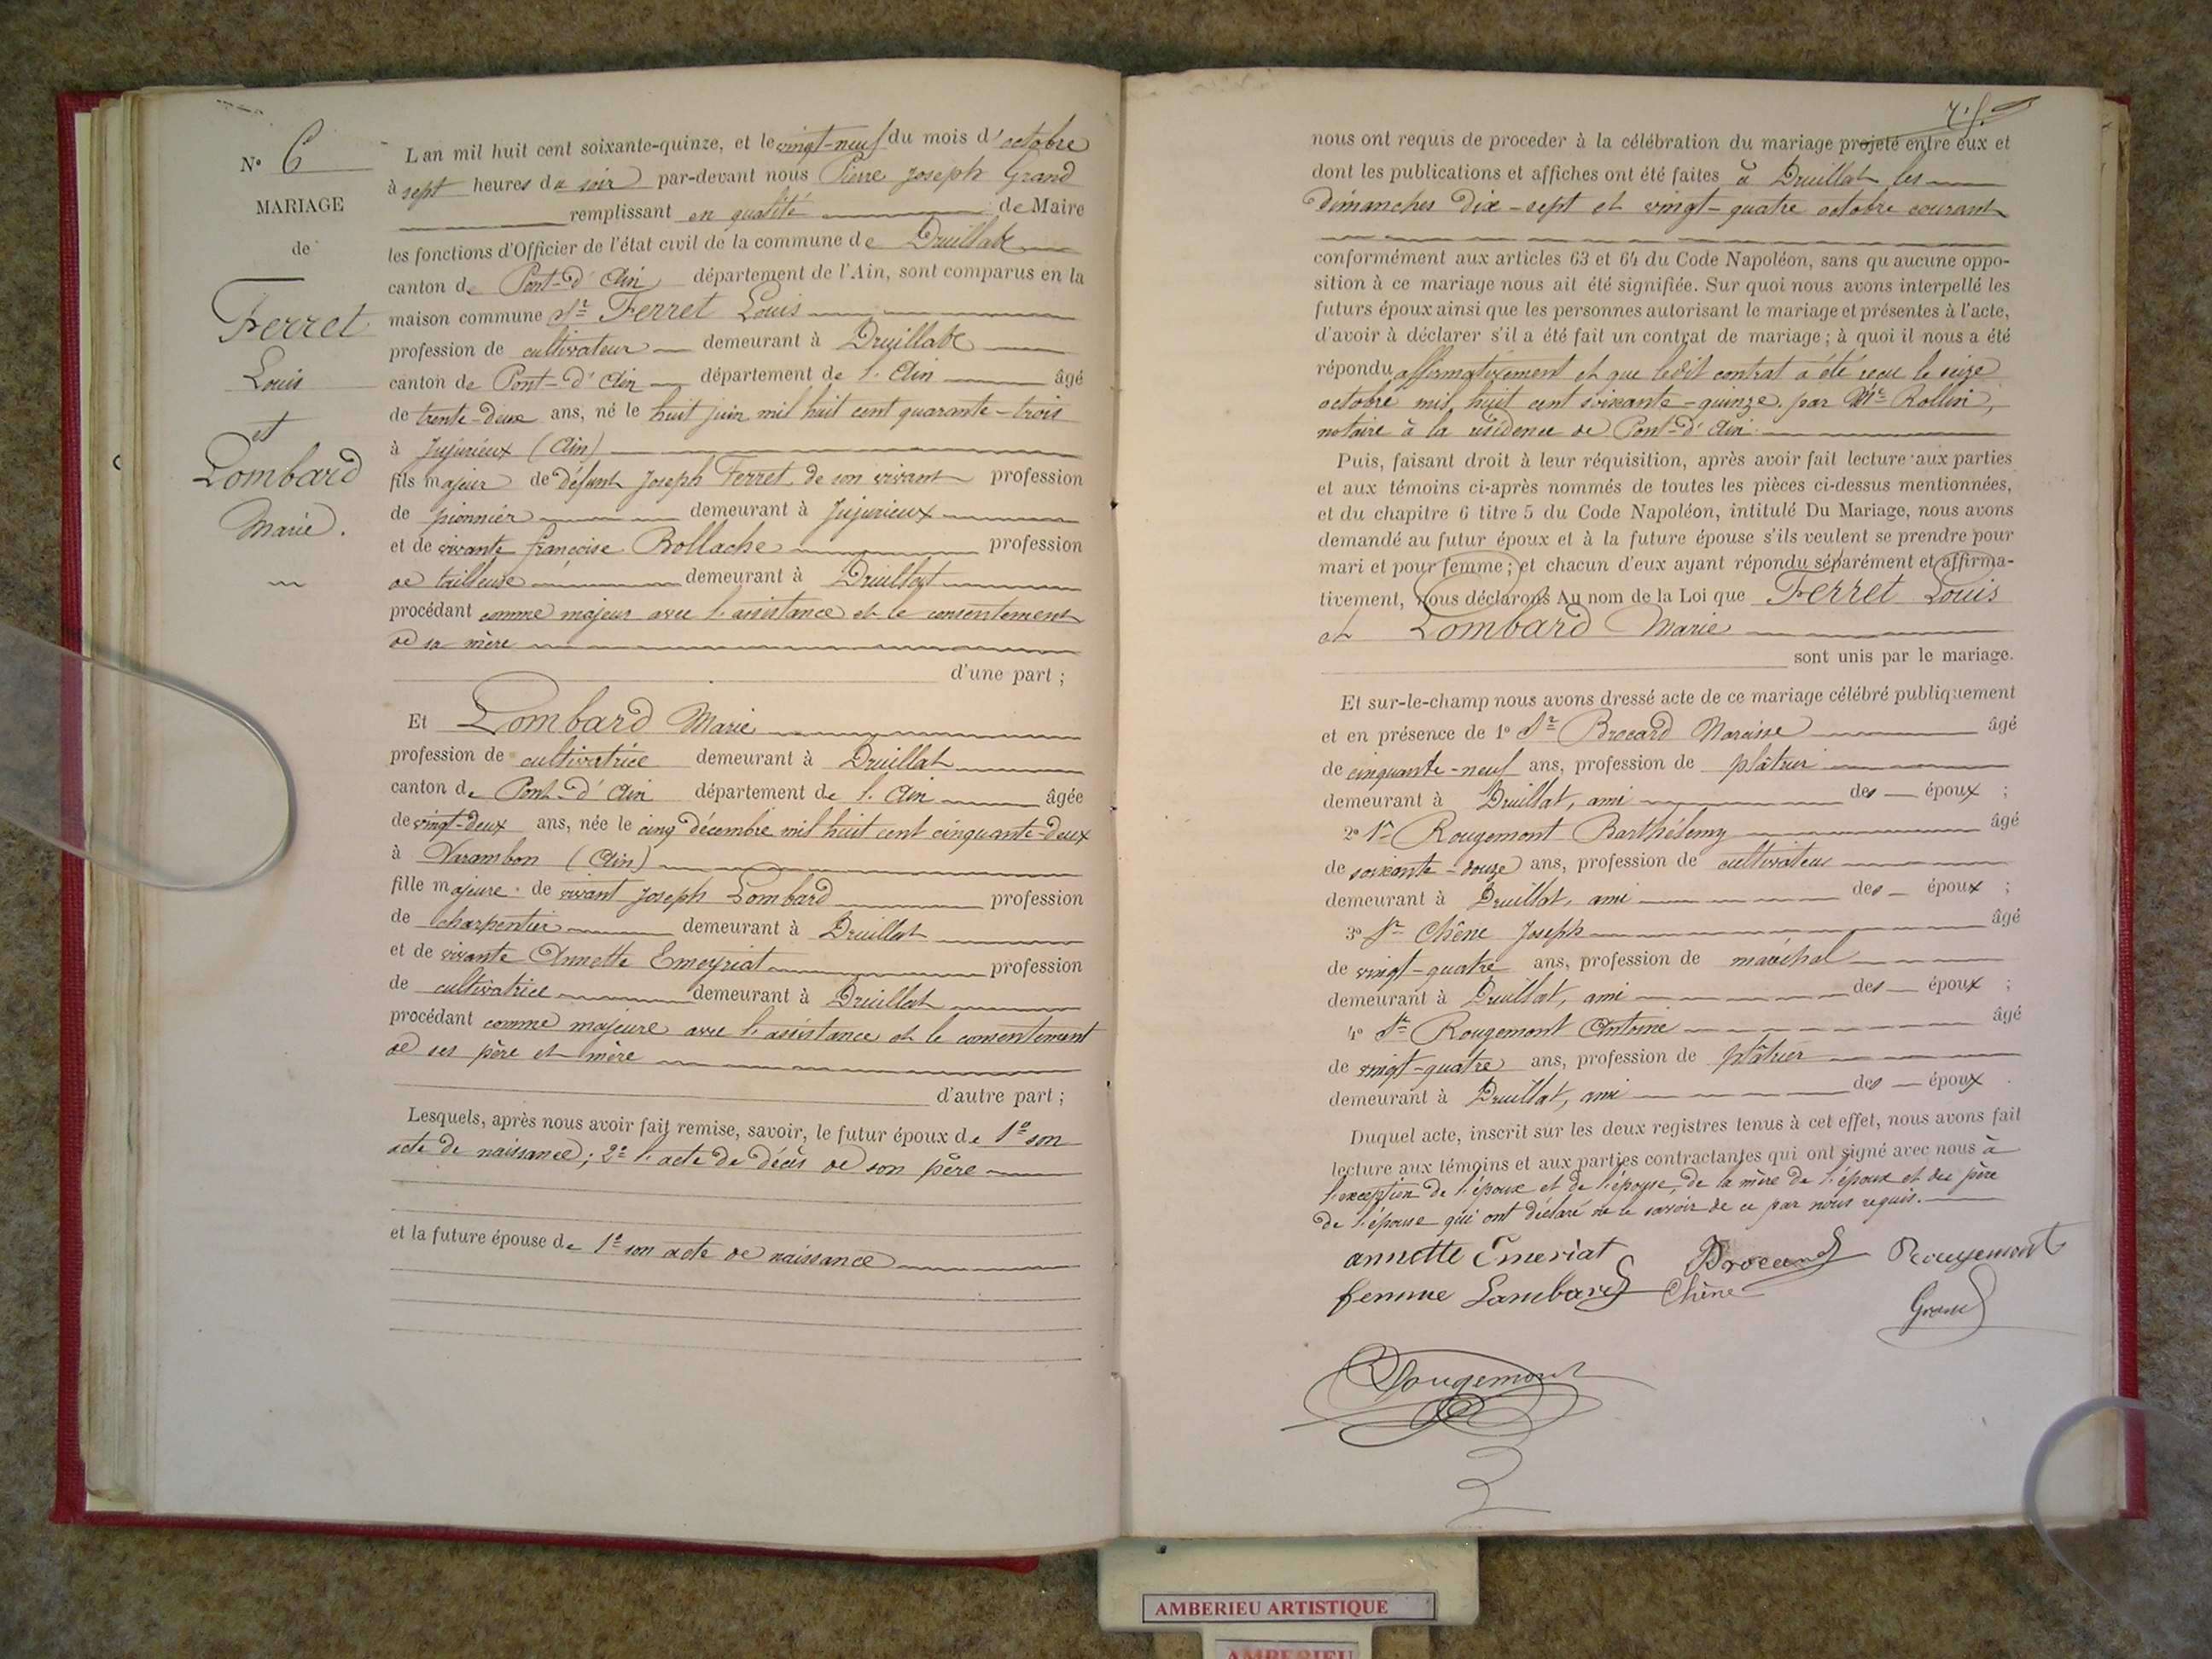 N° 6
MARIAGE
de
Ferret
Louis
et
Lombard
Marie.
L'an mil huit cent soixante-quinze, et le vingt-neuf du mois d'octobre
à sept heures du soir par-devant nous Pierre Joseph Grand
remplissant en qualité de Maire
les fonctions d'Officier de l'état civil de la commune de Druillat
canton de Pont-d'Ain département de l'Ain, sont comparus en la
maison commune Sr Ferret Louis
profession de cultivateur demeurant à Druillat
canton de Pont-d'Ain département de l'Ain âgé
de trente-deux ans, né le huit juin mil huit cent quarante-trois
à Jujurieux (Ain)
fils majeur de défunt Joseph Ferret, de son vivant profession
de pionnier demeurant à Jujurieux
et de vivante Françoise Bollache profession
de tailleuse demeurant à Druillat
procédant comme majeur avec l'assistance et le consentement
de sa mère
d'une part ;
Et Lombard Marie
profession de cultivatrice demeurant à Druillat
canton de Pont-d'Ain département de l'Ain âgée
de vingt-deux ans, née le cinq décembre mil huit cent cinquante-deux
à Varambon (Ain)
fille majeure de vivant Joseph Lombard profession
de charpentier demeurant à Druillat
et de vivante Annette Emeyriat profession
de cultivatrice demeurant à Druillat
procédant comme majeure avec l'assistance et le consentement
de ses père et mère
d'autre part ;
Lesquels, après nous avoir fait remise, savoir, le futur époux de 1° son
acte de naissance; 2° l'acte de décès de son père
et la future épouse de 1° son acte de naissance
nous ont requis de proceder à la célébration du mariage projeté entre eux et
dont les publications et affiches ont été faites à Druillat, les
dimanches dix-sept et vingt-quatre octobre courant
conformément aux articles 63 et 64 du Code Napoléon, sans qu'aucune oppo-
sition à ce mariage nous ait été signifiée. Sur quoi nous avons interpellé les
futurs époux ainsi que les personnes autorisant le mariage et présentes à l'acte,
d'avoir à déclarer s'il a été fait un contrat de mariage ; à quoi il nous a été
répondu affirmativement et que ledit contrat a été reçu le seize
octobre mil huit cent soixante-quinze par Me Rollin,
notaire à la résidence de Pont-d'Ain.
Puis, faisant droit à leur réquisition, après avoir fait lecture aux parties
et aux témoins ci-après nommés de toutes les pièces ci-dessus mentionnées,
et du chapitre 6 titre 5 du Code Napoléon, intitulé Du Mariage, nous avons
demandé au futur époux et à la future épouse s'ils veulent se prendre pour
mari et pour femme ; et chacun d'eux ayant répondu séparément et affirma-
tivement, Nous déclarons Au nom de la Loi que Ferret Louis
et Lombard Marie
sont unis par le mariage.
Et sur-le-champ nous avons dressé acte de ce mariage célébré publiquement
et en présence de 1° Sr Brocard Narcisse âgé
de cinquante-neuf ans, profession de plâtrier
demeurant à Druillat, ami des époux ;
2° Sr Rougemont Barthélemy âgé
de soixante-douze ans, profession de cultivateur
demeurant à Druillat, ami des époux ;
3° Sr Chêne Joseph âgé
de vingt-quatre ans, profession de maréchal
demeurant à Druillat, ami des époux ;
4° Sr Rougemont Antoine âgé
de vingt-quatre ans, profession de plâtrier
demeurant à Druillat, ami des époux.
Duquel acte, inscrit sur les deux registres tenus à cet effet, nous avons fait
lecture aux témoins et aux parties contractantes qui ont signé avec nous à
l'exception de l'époux et de l'épouse, de la mère de l'époux et du père
de l'épouse qui ont déclaré ne le savoir de ce par nous requis.
annette Emeriat Brocard Rougemont
femme Lambard Chêne Grand
Rougemont
AMBERIEU ARTISTIQUE
AMBERIEU